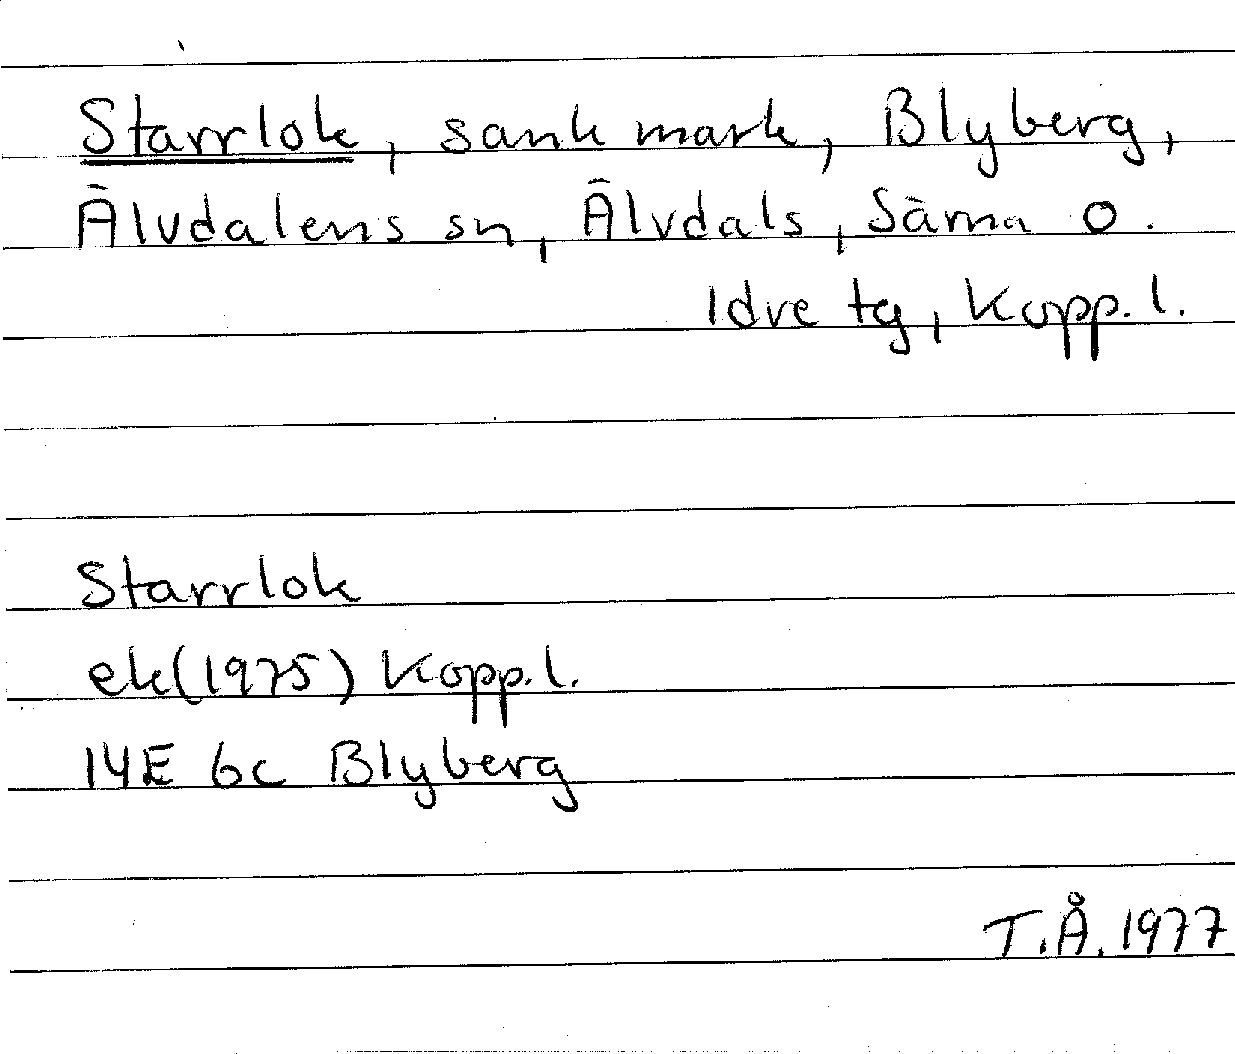 Starrlok, sank mark, Blyberg,
Älvdalens sn, Älvdals, Särna o.
Idre tg, Kopp.l.
Starrlok
ek(1975) Kopp.l.
14E 6c Blyberg
T.Å. 1977